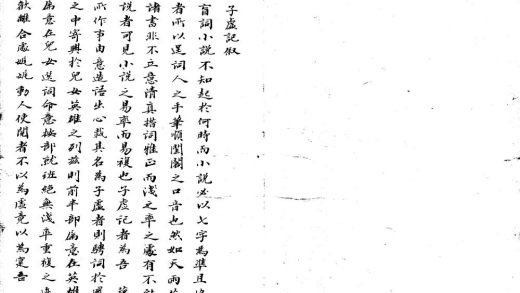 子虛記敘
盲詞小說不知起於何時而小說必以七字為準且
者所以逞詞人之手筆順閨閣之口音也然如天雨
諸書非不立意清真措詞雅正而淺率之處有不
說者可見小說之易率而易複也子虛記者為吾
所作事由意造語出心裁其名為子虛者則騁詞於
之中寄興於兒女英雄之列茲則前半部屬意在英雄
屬意在兒女逞詞命意按部就班絕無淺率重複之
歡離合處娓娓動人使閱者不以為虛竟以為寔吾